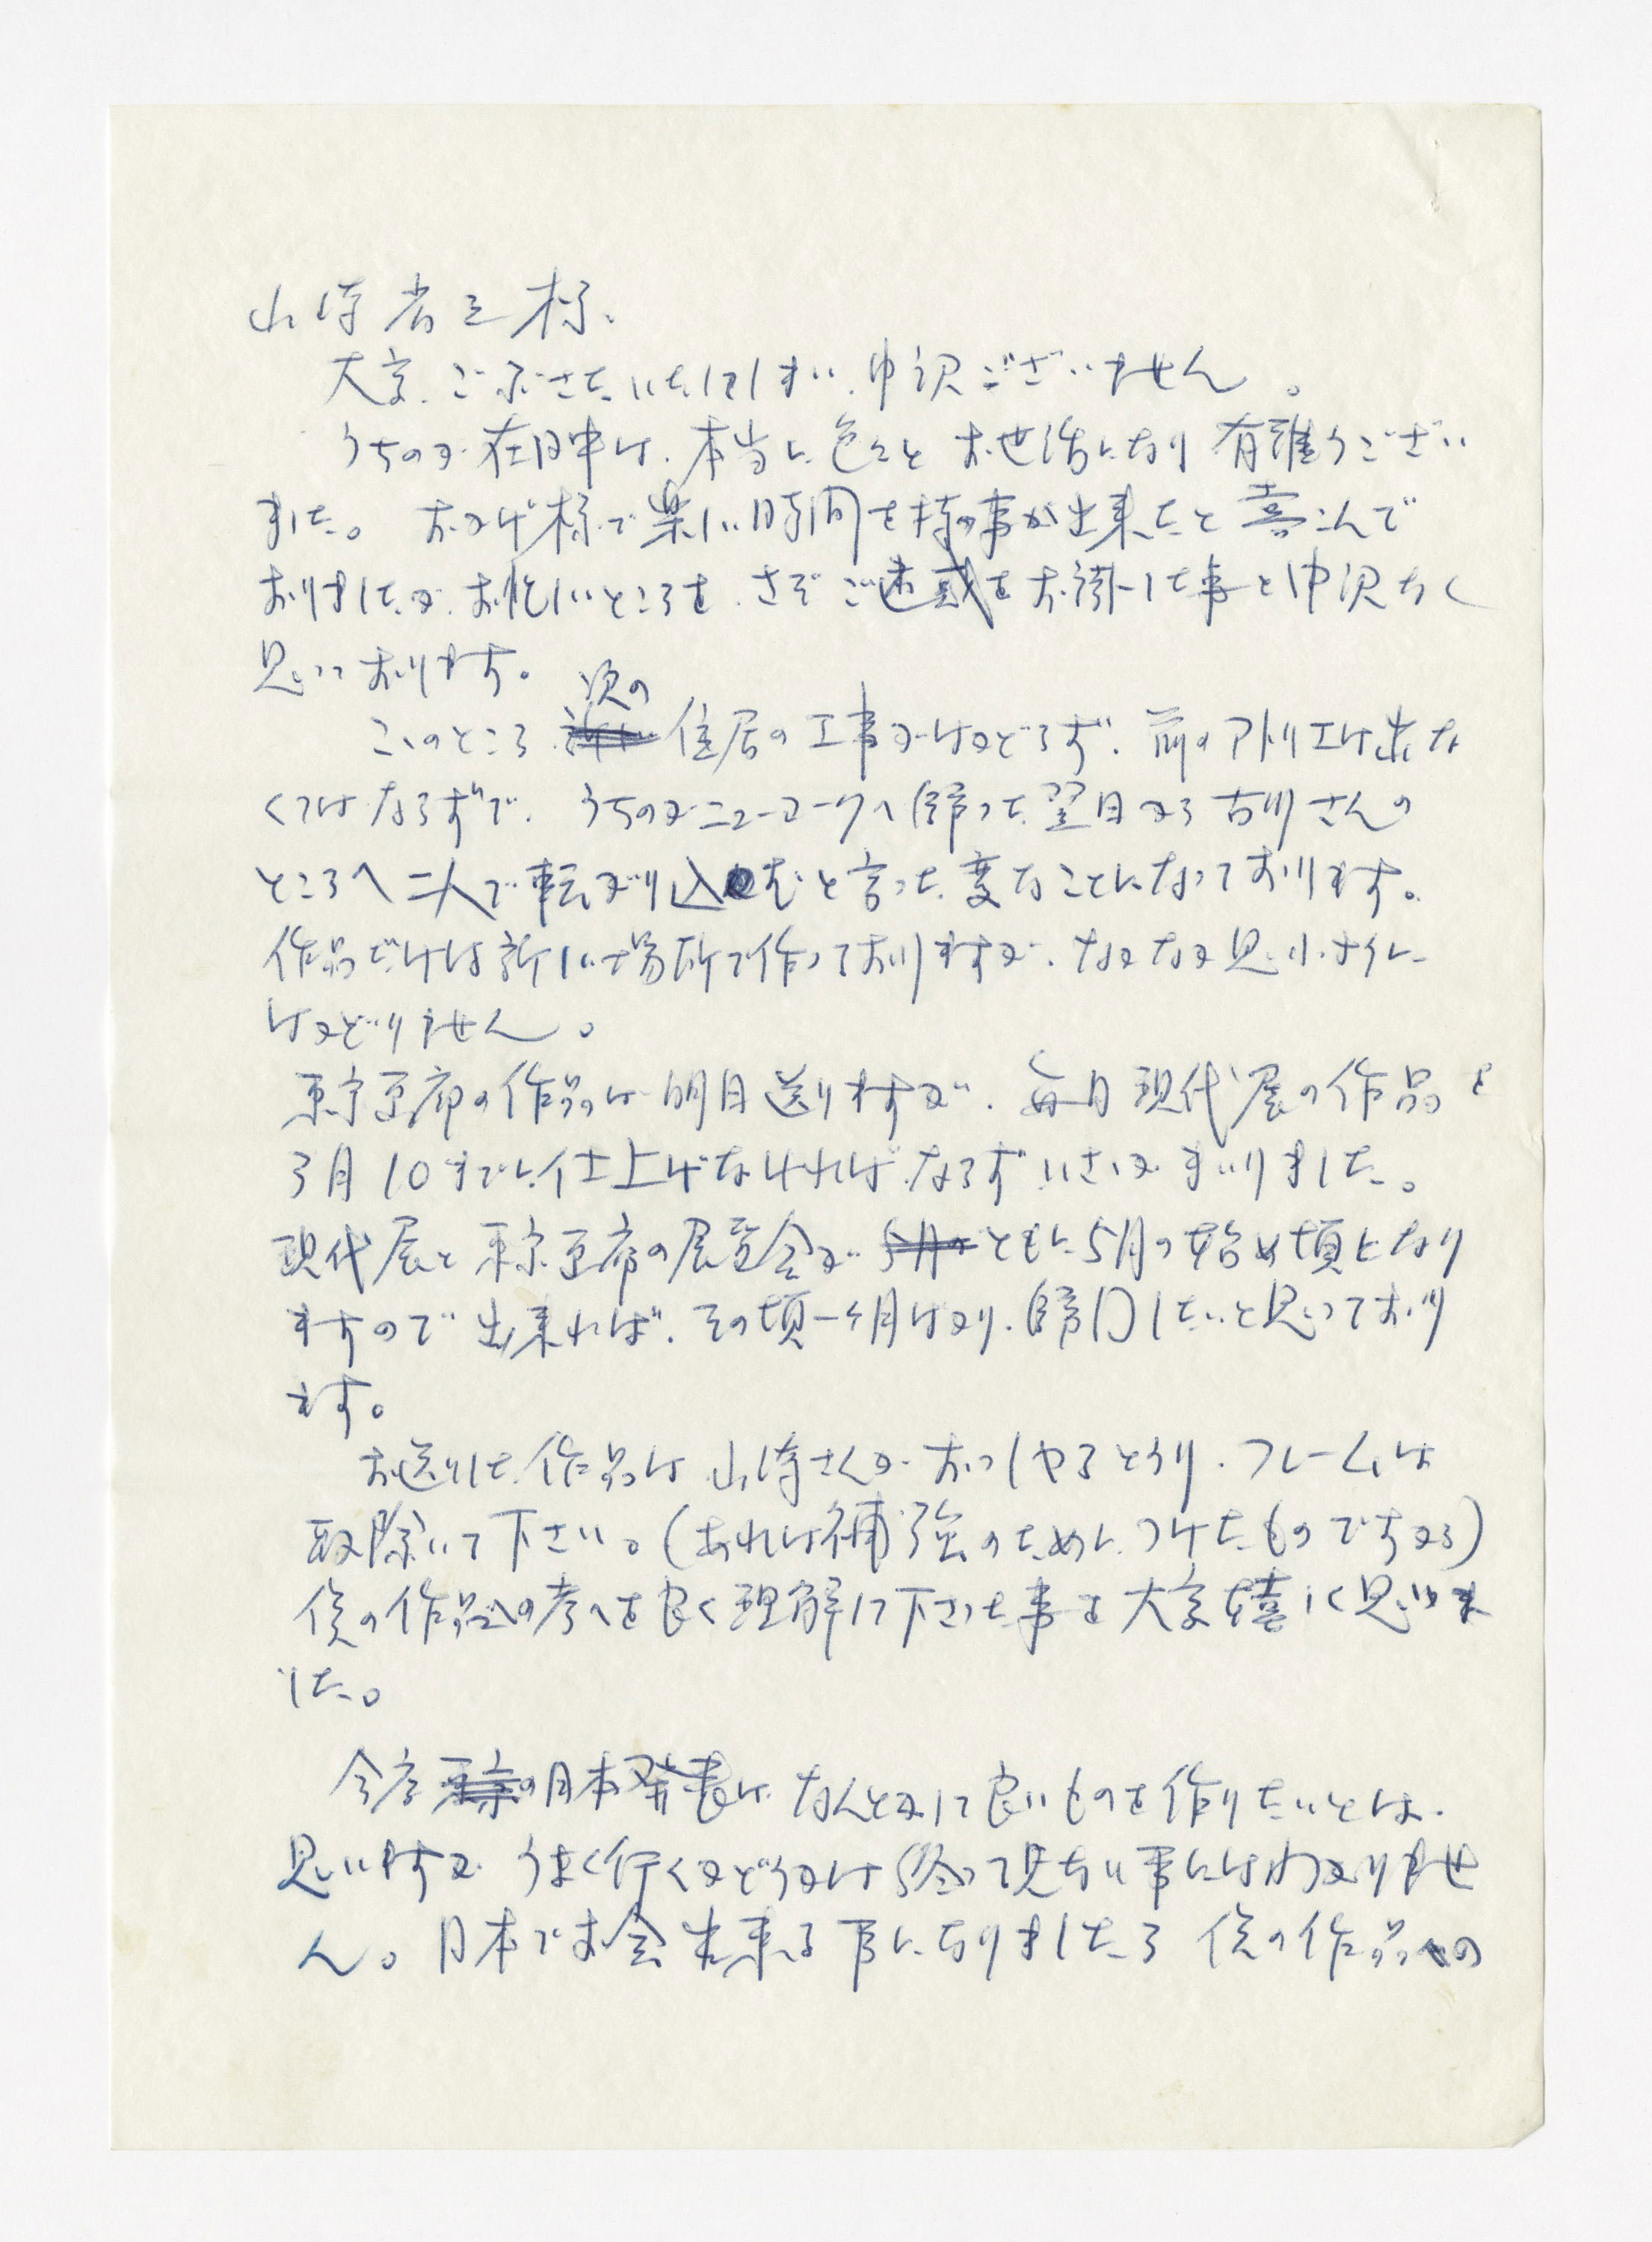 山崎省三様、
大変、ごぶさたいたしてしまい、申訳ございません。
うちのが在日中は、本当に色々とお世話になり有難うござい
ました。おかげ様で楽しい時間を持つ事が出来たと喜こんで
おりましたが、お忙しいところを、さぞご迷惑をお掛けした事と申訳なく
思っております。
このところ次の住居の工事がはかどらず、前のアトリエは出な
くてはならずで、うちのがニューヨークへ帰った翌日から古川さんの
ところへ二人で転がり込むと言った変なことになっております。
作品だけは新しい場所で作っておりますが、なかなか思いように
はかどりません。
東京画廊の作品は明日送りますが、毎日現代展の作品を
3月10までに仕上げなければならずいささかまいりました。
現代展と東京画廊の展覧会がともに5月の始め頃になり
ますので出来れば、その頃一ヶ月ばかり、帰日したいと思っており
ます。
お送りした作品は山崎さんがおっしゃるとうり、フレームは
取除いて下さい。(あれは補強のためにつけたものですから)
僕の作品への考へを良く理解して下さった事を大変嬉しく思いま
した。
今度の日本発表は、なんとかして良いものを作りたいとは、
思いますが、うまく行くかどうかは終って見ない事にはわかりませ
ん。日本でお会出来る事になりましたら僕の作品への